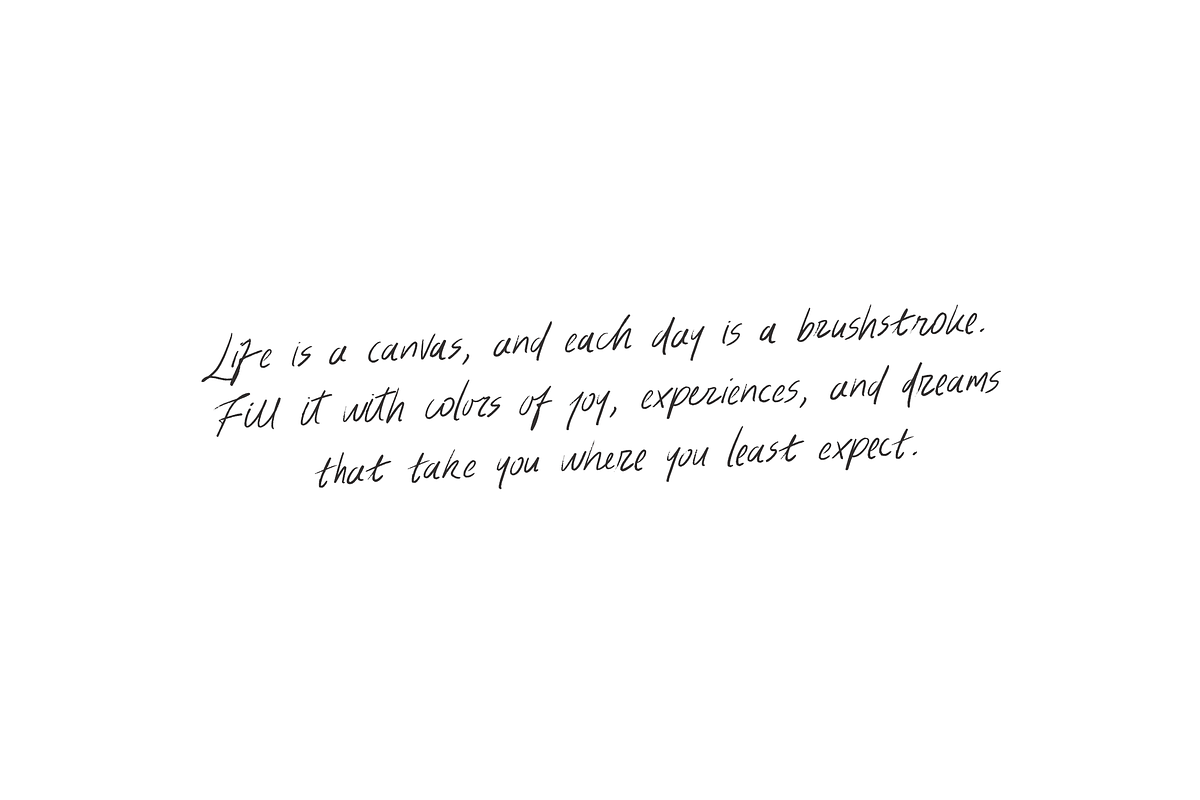 Life is a canvas, and each day is a brushstroke.
Fill it with colors of joy, experiences, and dreams
that take you where you least expect.